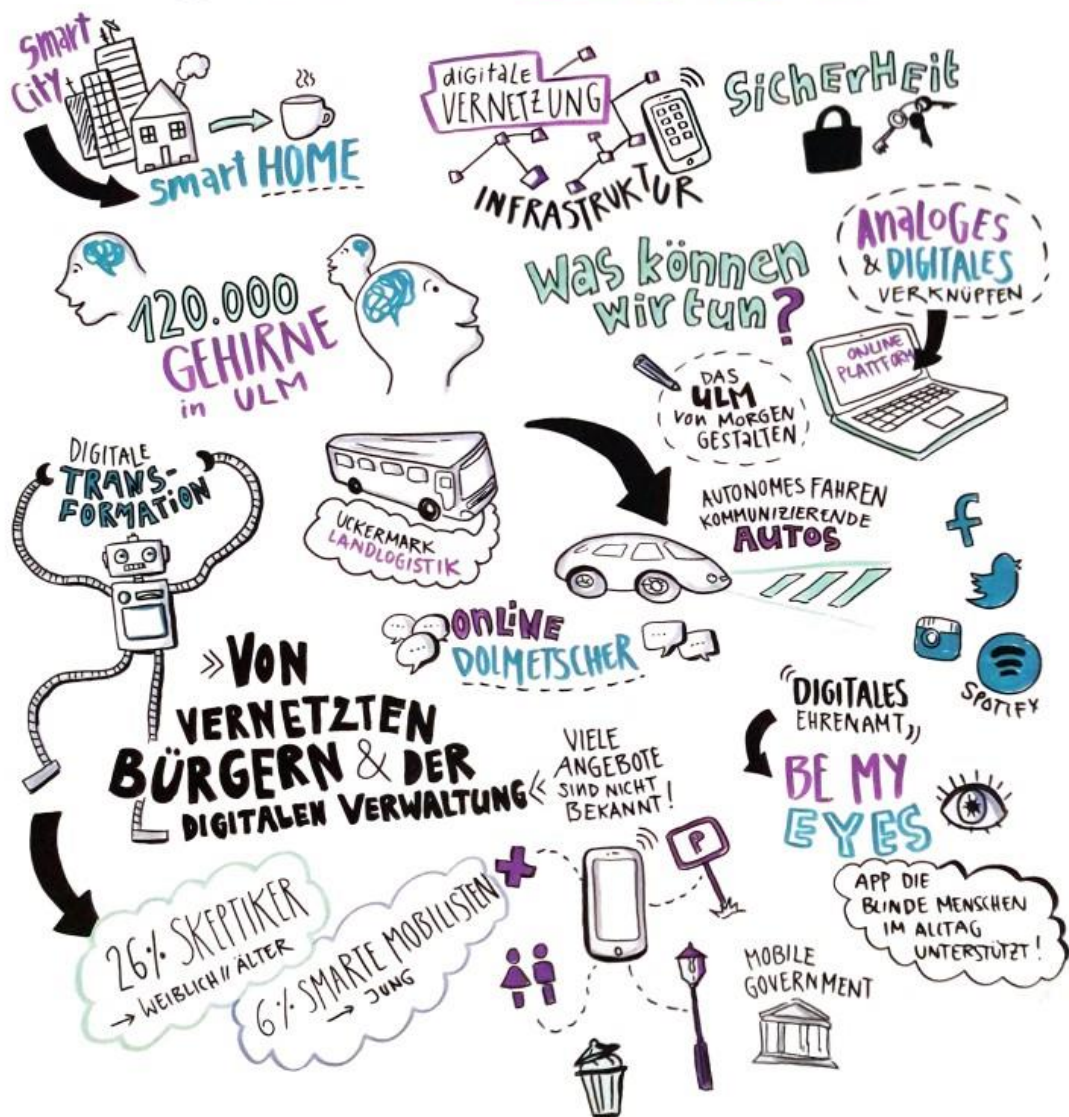 smart
City
smart HOME
digitale
VERNETZUNG
INFRASTRUKTUR
SicHErHEit
ANALOGES
& DIGITALES
VERKNÜPFEN
ONLINE
PLATTFORM
Was können
wir tun?
DAS
ULM
VON MORGEN
GESTALTEN
120.000
GEHIRNE
in ULM
DIGITALE
TRANS-
FORMATION
UCKERMARK
LANDLOGISTIK
AUTONOMES FAHREN
KOMMUNIZIERENDE
AUTOS
f
SPOTIFY
ONLINE
DOLMETSCHER
»VON
VERNETZTEN
BÜRGERN & DER
DIGITALEN VERWALTUNG«
VIELE
ANGEBOTE
SIND NICHT
BEKANNT!
"DIGITALES
EHRENAMT"
BE MY
EYES
APP DIE
BLINDE MENSCHEN
IM ALLTAG
UNTERSTÜTZT!
P
26% SKEPTIKER
→ WEIBLICH // ÄLTER
6% SMARTE MOBILISTEN
→ JUNG
MOBILE
GOVERNMENT